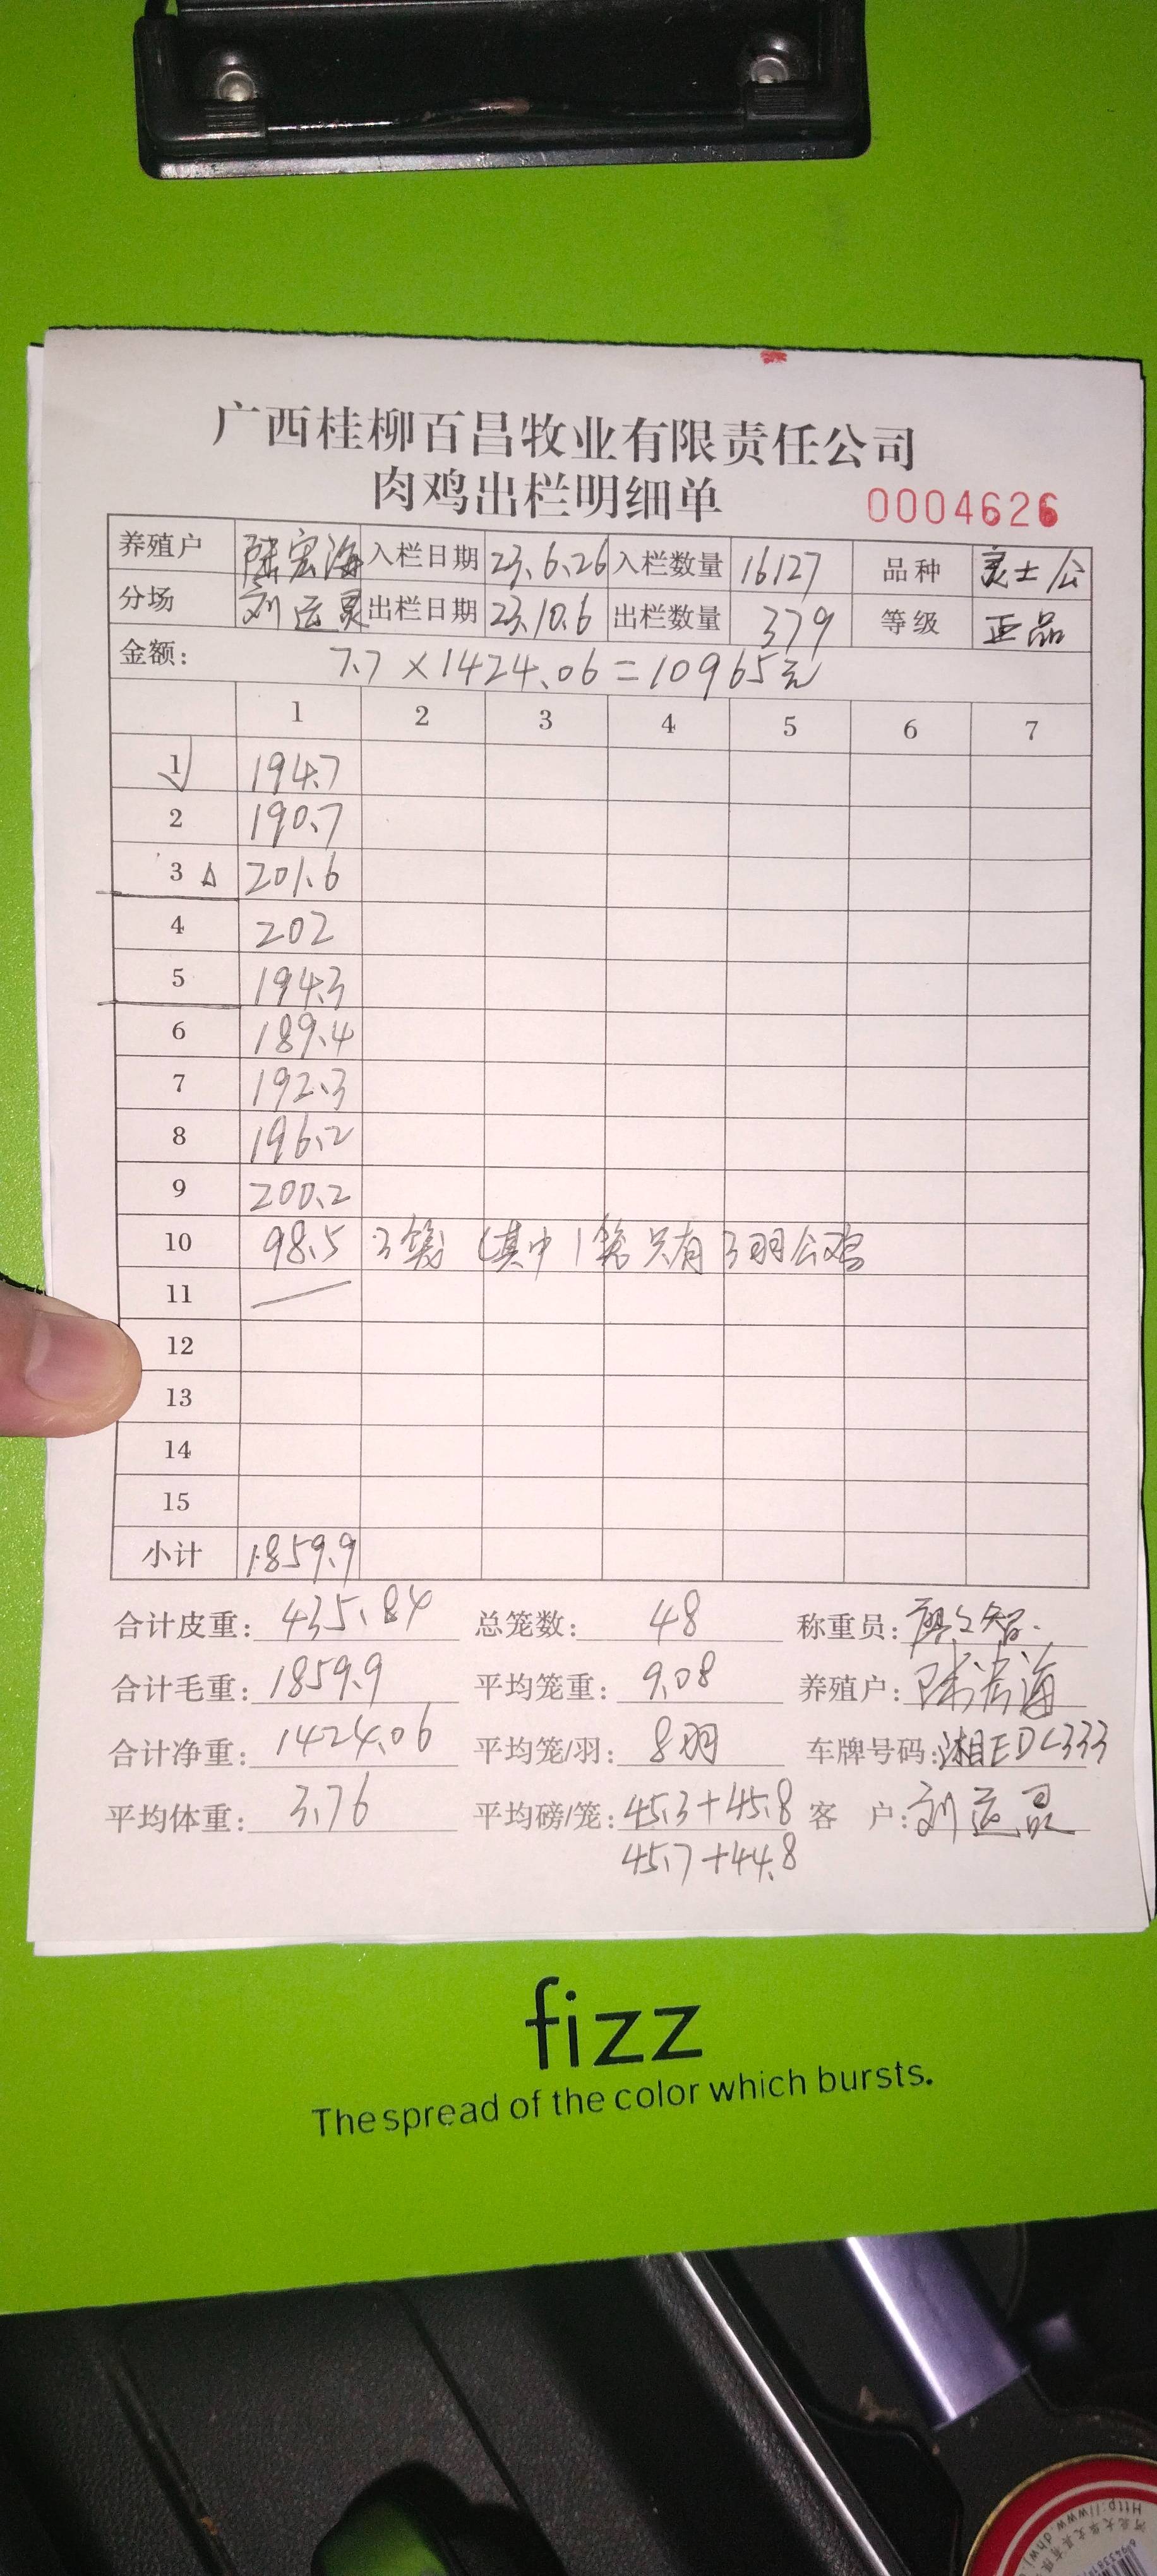 广西桂柳百昌牧业有限责任公司
肉鸡出栏明细单 0004626
养殖户 陆宏海 入栏日期 23.6.26 入栏数量 16127 品种 灵士/公
分场 刘运灵 出栏日期 23.10.6 出栏数量 379 等级 正品
金额: 7.7×1424.06=10965元
1 2 3 4 5 6 7
1 194.7
2 190.7
3 201.6
4 202
5 194.3
6 189.4
7 192.3
8 196.2
9 200.2
10 98.5 3笼 (其中1笼只有3羽公鸡
11
12
13
14
15
小计 1859.9
合计皮重: 435.84 总笼数: 48 称重员:
合计毛重: 1859.9 平均笼重: 9.08 养殖户: 陆宏海
合计净重: 1424.06 平均笼/羽: 8羽 车牌号码: 湘EDC333
平均体重: 3.76 平均磅/笼: 45.3+45.8 客 户: 刘运灵
45.7+44.8
fizz
The spread of the color which bursts.